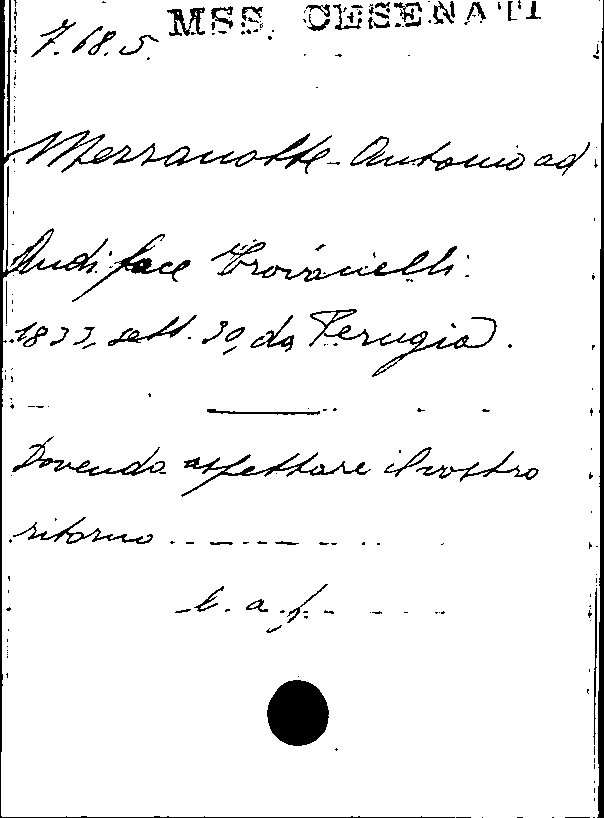 MSS. CESENATI
7.68.5.
Mezzanotte Antonio ad
Audiface Trovanelli.
1833, sett. 30, da Perugia.
Dovendo aspettare il vostro
ritorno ..........
l. a. f. - - - -